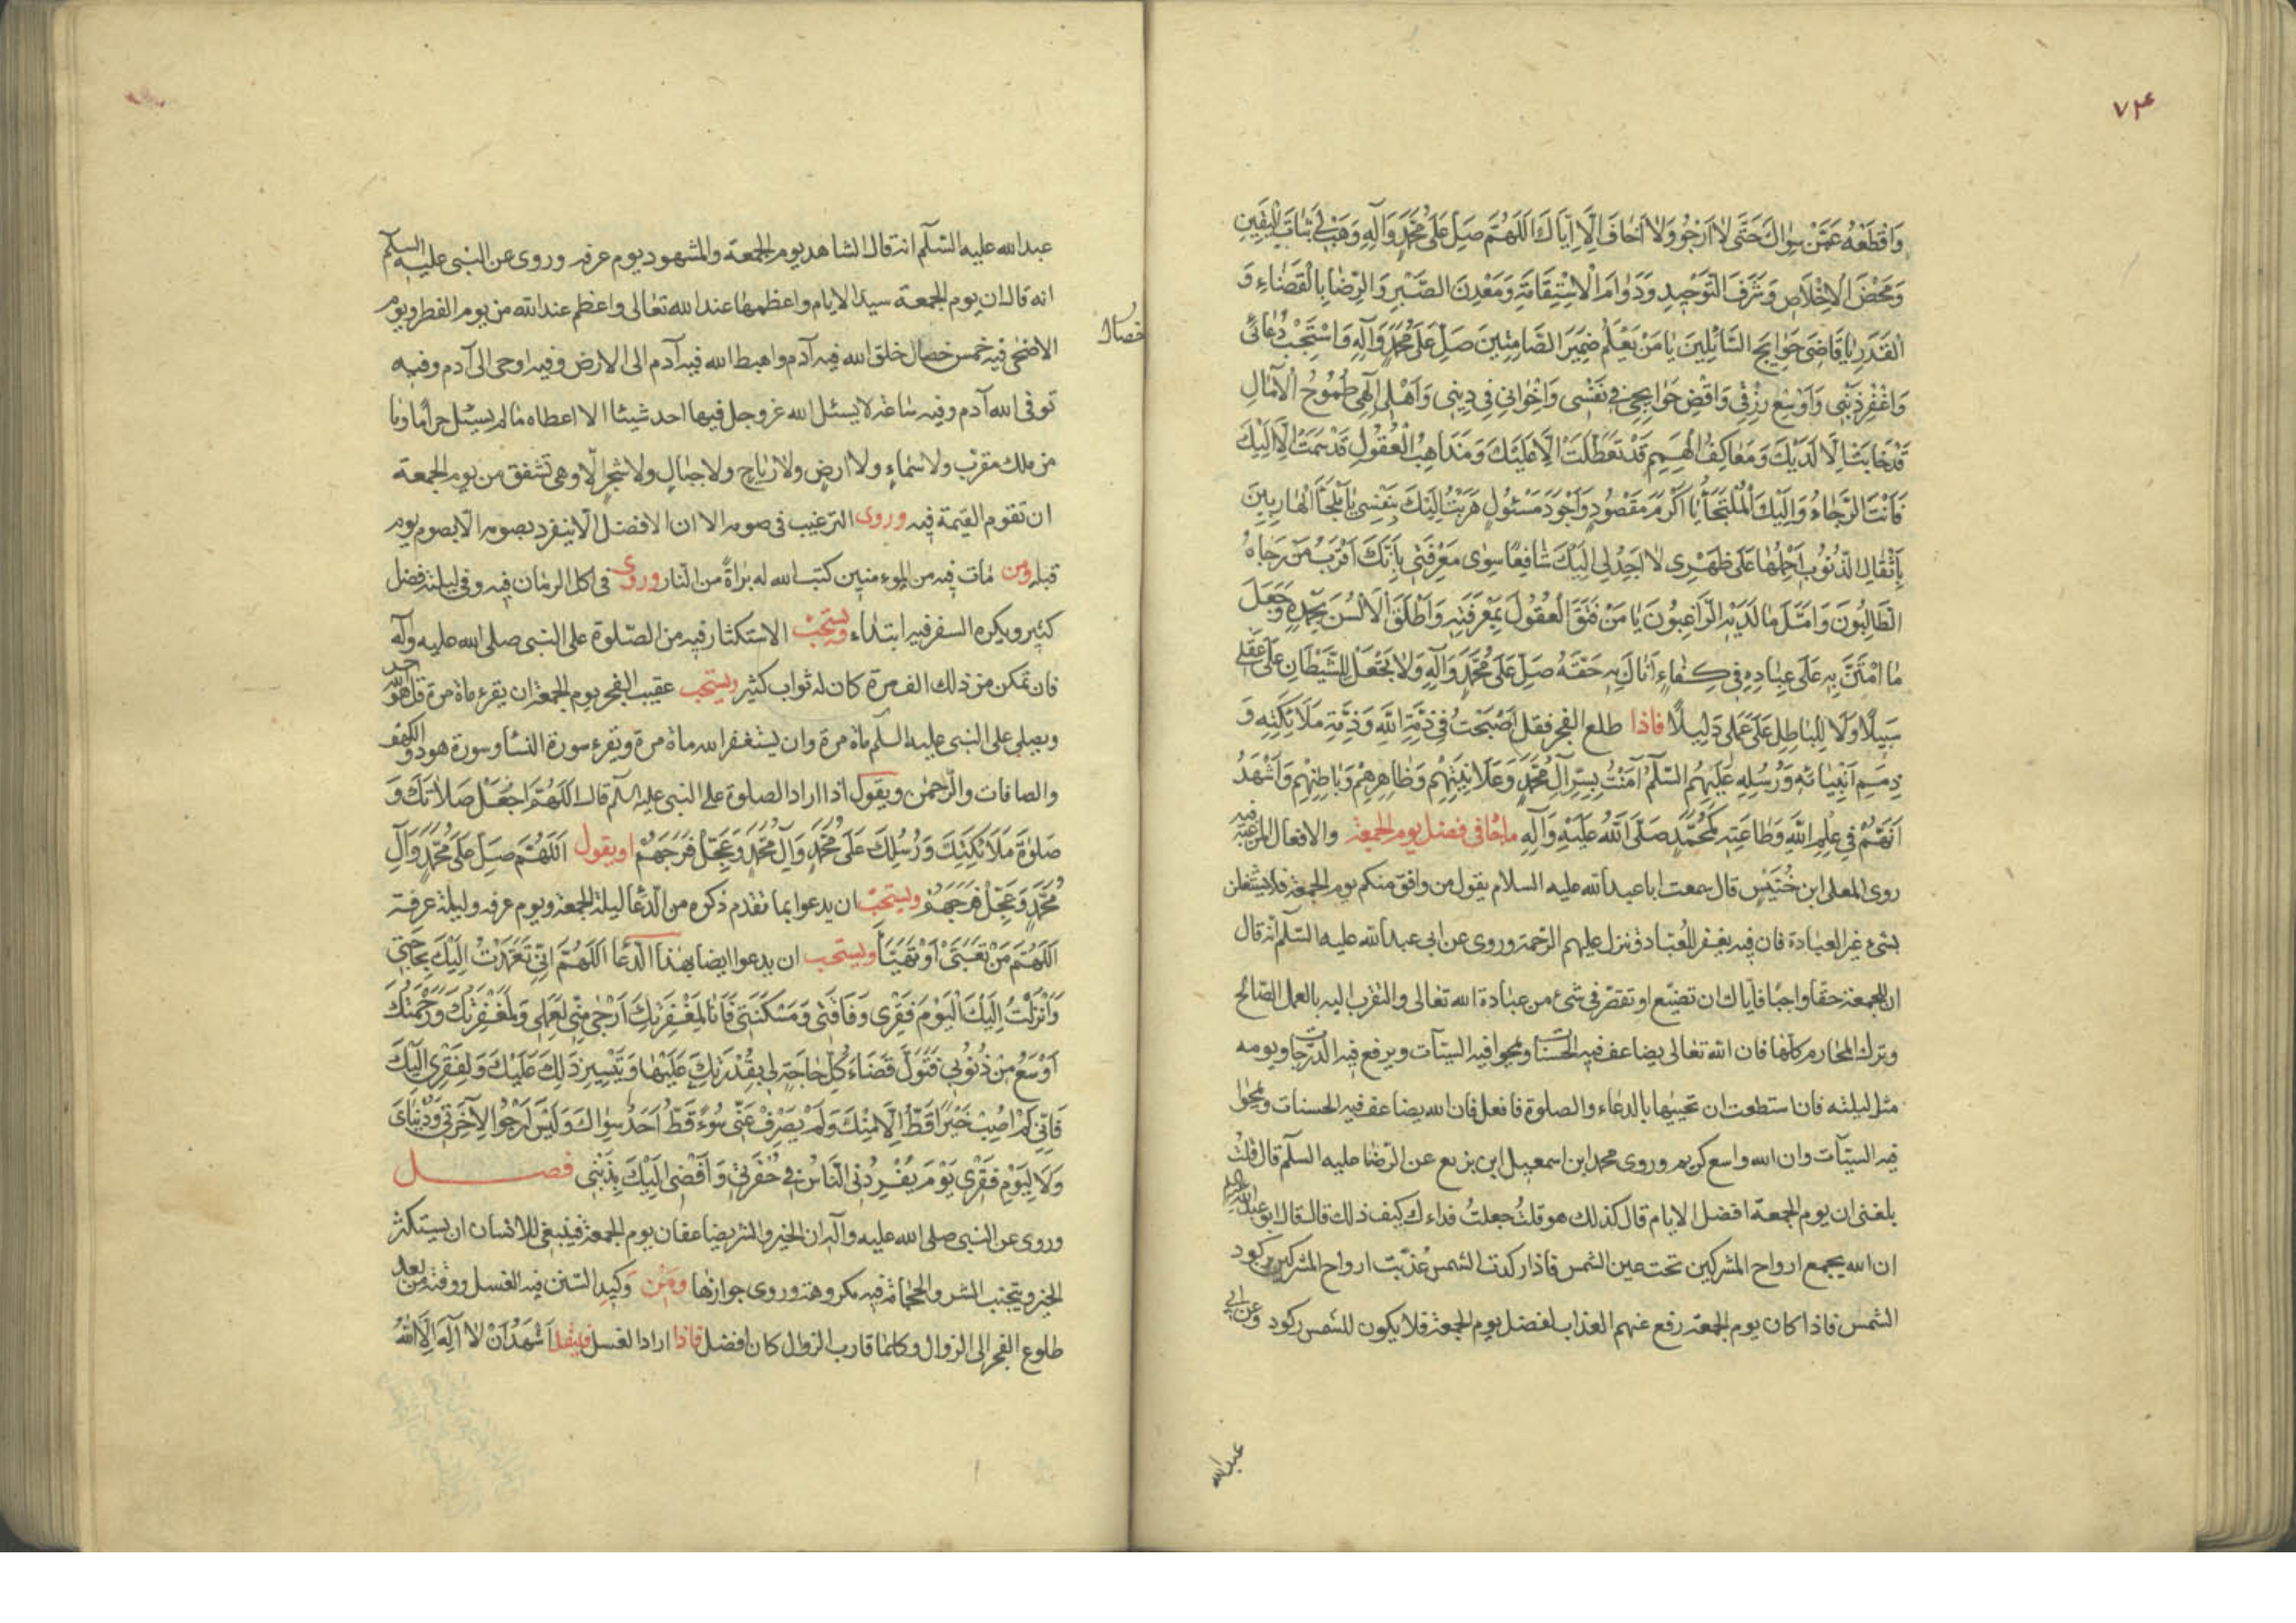 ٧٤
وَاقْطَعْهُ عَمَّنْ سِوَاكَ حَتَّى لَا اَرْجُوَ وَلَا اَخَافَ اِلَّا اِيَّاكَ اَللّهُمَّ صَلِّ عَلَى مُحَمَّدٍ وَآلِهِ وَهَبْ لِي ثَبَاتَ الْيَقِينِ
وَمَحْضَ الْاِخْلَاصِ وَشَرَفَ التَّوْحِيدِ وَدَوَامَ الْاِسْتِقَامَةِ وَمَعْدِنَ الصَّبْرِ وَالرِّضَا بِالْقَضَاءِ وَ
الْقَدَرِ يَا قَاضِيَ حَوَايِجِ السَّائِلِينَ يَا مَنْ يَعْلَمُ ضَمِيرَ الصَّامِتِينَ صَلِّ عَلَى مُحَمَّدٍ وَآلِهِ وَاسْتَجِبْ دُعَائِي
وَاغْفِرْ ذَنْبِي وَاَوْسِعْ رِزْقِي وَاقْضِ حَوَايِجِي فِي نَفْسِي وَاِخْوَانِي فِي دِينِي وَاَهْلِي اِلٰهِي طُمُوحُ الْآمَالِ
قَدْ خَابَتْ اِلَّا لَدَيْكَ وَمَعَاكِفُ الْهِمَمِ قَدْ تَعَطَّلَتْ اِلَّا عَلَيْكَ وَمَذَاهِبُ الْعُقُولِ قَدْ سَمَتْ اِلَّا اِلَيْكَ
فَاَنْتَ الرَّجَاءُ وَاِلَيْكَ الْمُلْتَجَأُ يَا اَكْرَمَ مَقْصُودٍ وَاَجْوَدَ مَسْئُولٍ هَرَبْتُ اِلَيْكَ بِنَفْسِي يَا مَلْجَأَ الْهَارِبِينَ
بِاَثْقَالِ الذُّنُوبِ اَحْمِلُهَا عَلَى ظَهْرِي لَا اَجِدُ لِي اِلَيْكَ شَافِعًا سِوَى مَعْرِفَتِي بِاَنَّكَ اَقْرَبُ مَنْ رَجَاهُ
الطَّالِبُونَ وَاَمَّلَ مَا لَدَيْهِ الرَّاغِبُونَ يَا مَنْ فَتَقَ الْعُقُولَ بِمَعْرِفَتِهِ وَاَطْلَقَ الْاَلْسُنَ بِحَمْدِهِ وَجَعَلَ
مَا امْتَنَّ بِهِ عَلَى عِبَادِهِ فِي كِفَاءٍ اَنَالَ بِهِ حَقَّهُ صَلِّ عَلَى مُحَمَّدٍ وَآلِهِ وَلَا تَجْعَلْ لِلشَّيْطَانِ عَلَى عَقْلِي
سَبِيلًا وَلَا لِلْبَاطِلِ عَلَى عَمَلِي دَلِيلًا فاذا طلع الفجر فقل اَصْبَحْتُ فِي ذِمَّةِ اللهِ وَذِمَّةِ مَلَائِكَتِهِ وَ
ذِمَمِ اَنْبِيَائِهِ وَرُسُلِهِ عَلَيْهِمُ السَّلَمُ آمَنْتُ بِسِرِّ آلِ مُحَمَّدٍ وَعَلَانِيَتِهِمْ وَظَاهِرِهِمْ وَبَاطِنِهِمْ وَاَشْهَدُ
اَنَّهُمْ فِي عِلْمِ اللهِ وَطَاعَتِهِ كَمُحَمَّدٍ صَلَّى اللهُ عَلَيْهِ وَآلِهِ ماجا في فضل يوم الجمعة والافعال المرغبة فيه
روى المعلى ابن خُنَيْسٍ قال سمعت ابا عبدالله عليه السلام يقول من وافق منكم يوم الجمعة فلا يشتغلن
بشئ غير العبادة فان فيه يغفر للعباد وتنزل عليهم الرّحمة وروى عن ابي عبدالله عليه السّلم انه قال
ان للجمعة حقّا واجبا فاياك ان تضيّع او تقصّر في شئ من عبادة الله تعالى والتقرب اليه بالعمل الصّالح
وترك المحارم كلّها فان الله تعالى يضاعف فيه الحسنات ويمحوا فيه السيّآت ويرفع فيه الدّرجات ويومه
مثل ليلته فان استطعت ان تحييها بالدعاء والصلوة فافعل فان الله يضاعف فيه الحسنات ويمحوا
فيه السيّآت وان الله واسع كريم وروى محمد ابن اسمعيل ابن بزيع عن الرّضا عليه السلم قال قلت
بلغنى ان يوم الجمعة افضل الايام قال كذلك هو قلت جعلت فداءك كيف ذلك قال قال ابو عبدالله
ان الله يجمع ارواح المشركين تحت عين الشمس فاذا ركدت الشمس عُذّبت ارواح المشركين بركود
الشمس فاذا كان يوم الجمعة رفع عنهم العذاب لفضل يوم الجمعة فلا يكون للشمس ركود وعن ابي
عبدالله
عبدالله عليه السّلم انه قال الشاهد يوم الجمعة والمشهود يوم عرفه وروى عن النبى عليه السلم
انه قال ان يوم الجمعة سيد الايام واعظمها عند الله تعالى واعظم عند الله من يوم الفطر ويوم
الاضحى فيه خمس خصال خلق الله فيه آدم واهبط الله فيه آدم الى الارض وفيه اوحى الى آدم وفيه
خصال
توفى الله آدم وفيه ساعة لا يسئل الله عزوجل فيها احد شيئا الا اعطاه ما لم يسئل حراما وما
من ملك مقرّب ولا سماءٍ ولا ارضٍ ولا رياحٍ ولا جبالٍ ولا شجرٍ الّا وهى تشفق من يوم الجمعة
ان تقوم القيمة فيه وروى الترغيب فى صومه الا ان الافضل الّا ينفرد بصومه الا بصوم يوم
قبله ومن مات فيه من المؤمنين كتب الله له براةً من النّار وروى فى اكل الرمّان فيه وفى ليلته فضل
كثير ويكره السفر فيه ابتداء ويستحبّ الاستكثار فيه من الصّلوة على النبى صلى الله عليه وآله
فان تمكن من ذلك الف مرة كان له ثواب كثير ويستحب عقيب الفجر يوم الجمعة ان يقرء ماة مرة قل هو الله احد
ويصلى على النبى عليه السلم ماة مرة وان يستغفر الله ماة مرة ويقرء سورة النسا وسورة هود والكهف
والصافات والرّحمن ويقول اذا اراد الصلوة على النبى عليه السلم قال اللهُمَّ اجْعَلْ صَلَاتَكَ وَ
صَلوٰةَ مَلَائِكَتِكَ وَرُسُلِكَ عَلَى مُحَمَّدٍ وَآلِ مُحَمَّدٍ وَعَجِّلْ فَرَجَهُمْ او يقول اَللّهُمَّ صَلِّ عَلَى مُحَمَّدٍ وَآلِ
مُحَمَّدٍ وَعَجِّلْ فَرَجَهُمْ ويستحبّ ان يدعوا بما تقدم ذكره من الدّعا ليلة الجمعة ويوم عرفه وليلة عرفة
اَللّهُمَّ مَنْ تَعَبَّى اَوْ تَهَيَّأَ ويستحب ان يدعوا ايضا بهذا الدّعا اَللّهُمَّ اِنِّي تَعَمَّدْتُ اِلَيْكَ بِحَاجَتِي
وَاَنْزَلْتُ اِلَيْكَ الْيَوْمَ فَقْرِي وَفَاقَتِي وَمَسْكَنَتِي فَاَنَا لِمَغْفِرَتِكَ اَرْجَى مِنِّي لِعَمَلِي وَلَمَغْفِرَتُكَ وَرَحْمَتُكَ
اَوْسَعُ مِنْ ذُنُوبِي فَتَوَلَّ قَضَاءَ كُلِّ حَاجَةٍ لِي بِقُدْرَتِكَ عَلَيْهَا وَتَيْسِيرِ ذَلِكَ عَلَيْكَ وَلِفَقْرِي اِلَيْكَ
فَاِنِّي لَمْ اُصِبْ خَيْرًا قَطُّ اِلَّا مِنْكَ وَلَمْ يَصْرِفْ عَنِّي سُوءً قَطُّ اَحَدٌ سِوَاكَ وَلَيْسَ اَرْجُوا لِآخِرَتِي وَدُنْيَايَ
وَلَا لِيَوْمِ فَقْرِي يَوْمَ يُفْرِدُنِي النَّاسُ فِي حُفْرَتِي وَاُفْضِي اِلَيْكَ بِذَنْبِي فصل
وروى عن النبى صلى الله عليه وآله ان الخير والشر يضاعفان يوم الجمعة فينبغى للانسان ان يستكثر
الخير ويتجنب الشر والحجامة فيه مكروهة وروى جوازها ومن وكيد السنن فيه الغسل ووقته من بعد
طلوع الفجر الى الزوال وكلما قارب الزوال كان افضل فاذا اراد الغسل فليقل اَشْهَدُ اَنْ لَا اِلٰهَ اِلَّا اللهُ